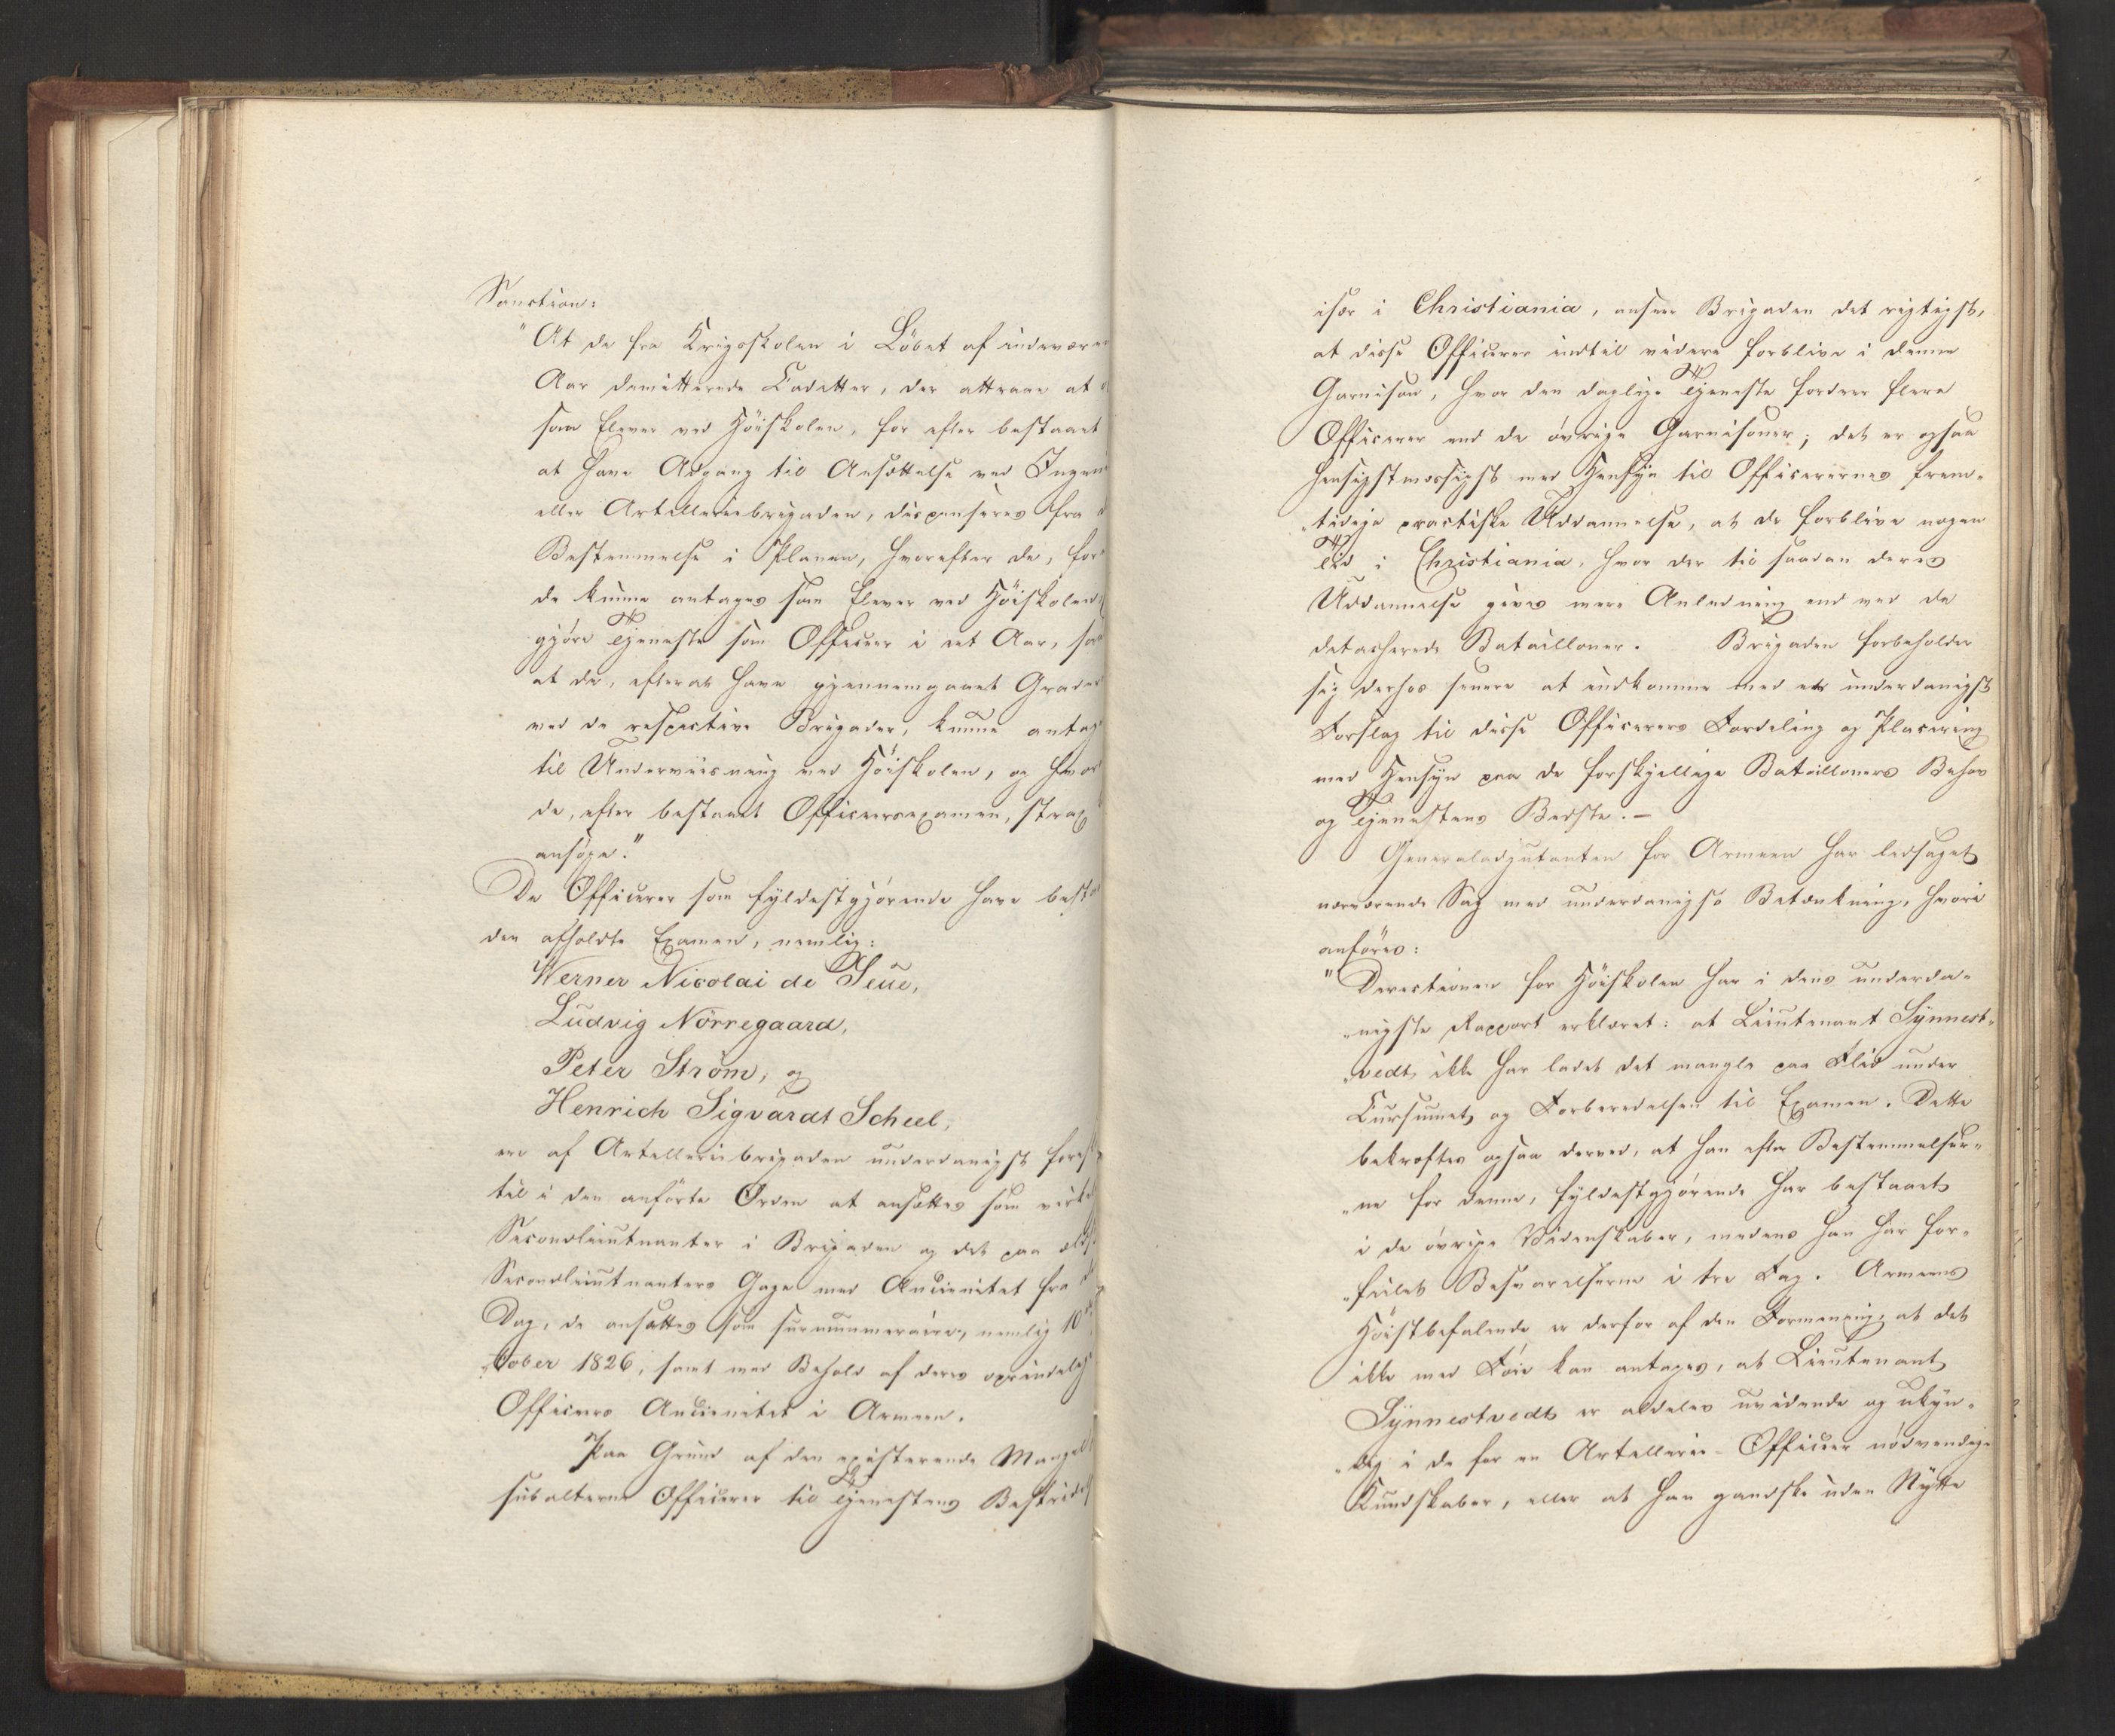 Sanction:
"At de fra Krigsskolen i Löbet af indeværen
Aar demitterede Cadetter, der attraae at
som Elever ved Höiskolen, for efter bestaaet
at have Adgang til Ansættelse ved Ingeni
eller Artilleriebrigaden, dispenseres fra
Bestemmelse i Planen, hvorefter de, for
de kunne antages som Elever ved Höiskolen
gjöre Tjeneste som Officeer i eet Aar, saa
at de, efterat have gjennemgaaet Grader
ved de respective Brigader, kunne antag
til Underviisning ved Höiskolen, og hvor
de, efter bestaaet Officeersexamen, strax
ansöge."
De Officerer som fyldestgjörende have besta
den afholdte Examen, nemlig:
Werner Nicolai de Seue,
Ludvig Nörregaard,
Peter Ström, og
Henrich Sigvardt Scheel,
ere af Artilleriebrigaden underdanigst fores
til i den anförte Orden at ansættes som virke
Secondlieutnanter i Brigaden og det paa ælds
Secondlieutnanters Gage med Ancienitet fra d
Dag, de ansattes som surnummeraire, nemlig 10
„tober 1826, samt med Behold af deres oprindelige
Officers Ancienitet i Armeen.
Paa Grund af den existerende Mangel
subalterne Officerer til Tjenestens Bestridel
især i Christiania, anseer Brigaden det rigtigst,
at disse Officerer indtil videre forblive i denne
Garnison, hvor den daglige Tjeneste fordrer flere
Officerer end de övrige Garnisoner; det er ogsaa
hensigtsmæssigst med Hensyn til Officerernes frem-
„tidige practiske Uddannelse, at de forblive nogen
Tid i Christiania, hvor der til saadan deres
Uddannelse gives mere Anledning end ved de
detacherede Batailloner. Brigaden forbeholder
sig derhos senere at indkomme med et underdanigst
Forslag til disse Officerers Fordeling og Placering
med Hensyn paa de forskjellige Batailloners Behov
og Tjenestens Bedste.—
Generaladjutanten for Armeen har ledsaget
nærværende Sag med underdanigst Betænkning, hvori
anföres:
"Directionen for Höiskolen har i dens underda-
„nigste Rapport erklæret: at Lieutenant Synnest-
„vedt ikke har ladet det mangle paa Flid under
Cursuset og Forberedelsen til Examen. Dette
bekræftes ogsaa derved, at han efter Bestemmelser-
„ne for denne, fyldestgjörende har bestaaet
i de övrige Videnskaber, medens han har for-
„feilet Besvarelserne i tre Fag. Armeens
Höistbefalende er derfor af den Formening, at det
ikke med Föie kan antages, at Lieutenant
Synnestvedt er aldeles uvidende og ukyn-
„dig i de for en Artillerie-Officeer nödvendige
Kundskaber, eller at han gandske uden Nytte